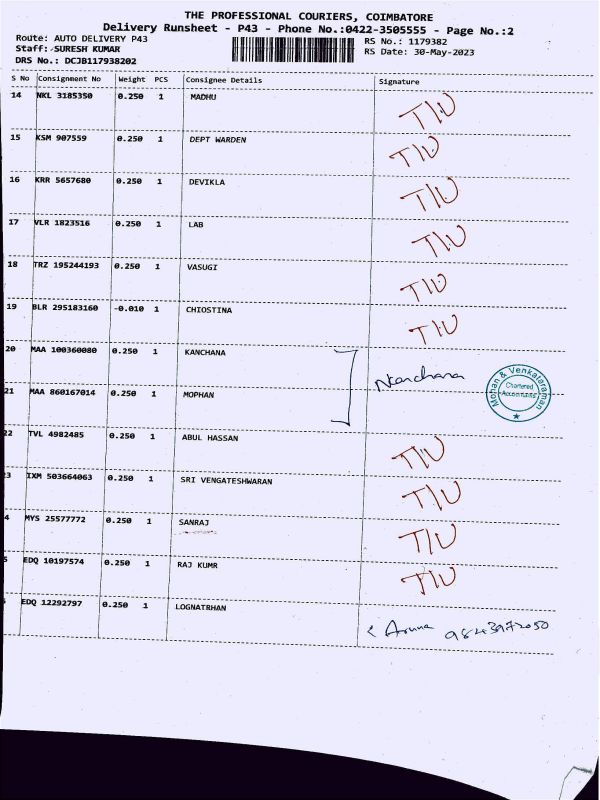 THE PROFESSIONAL COURIERS, COIMBATORE
Delivery Runsheet - P43 - Phone No.:0422-3505555 - Page No.:2
Route: AUTO DELIVERY P43 RS No.: 1179382
Staff: SURESH KUMAR RS Date: 30-May-2023
DRS No.: DCJB117938202
S No Consignment No Weight PCS Consignee Details Signature
14 NKL 3185350 0.250 1 MADHU T/U
15 KSM 907559 0.250 1 DEPT WARDEN T/U
16 KRR 5657680 0.250 1 DEVIKLA T/U
17 VLR 1823516 0.250 1 LAB T/U
18 TRZ 195244193 0.250 1 VASUGI T/U
19 BLR 295183160 -0.010 1 CHIOSTINA T/U
20 MAA 100360080 0.250 1 KANCHANA
21 MAA 860167014 0.250 1 MOPHAN
Mohan & Venkataraman
Chartered
Accountants
22 TVL 4982485 0.250 1 ABUL HASSAN T/U
3 IXM 503664063 0.250 1 SRI VENGATESHWARAN T/U
4 MYS 25577772 0.250 1 SANRAJ T/U
5 EDQ 10197574 0.250 1 RAJ KUMR T/U
EDQ 12292797 0.250 1 LOGNATRHAN Aruna